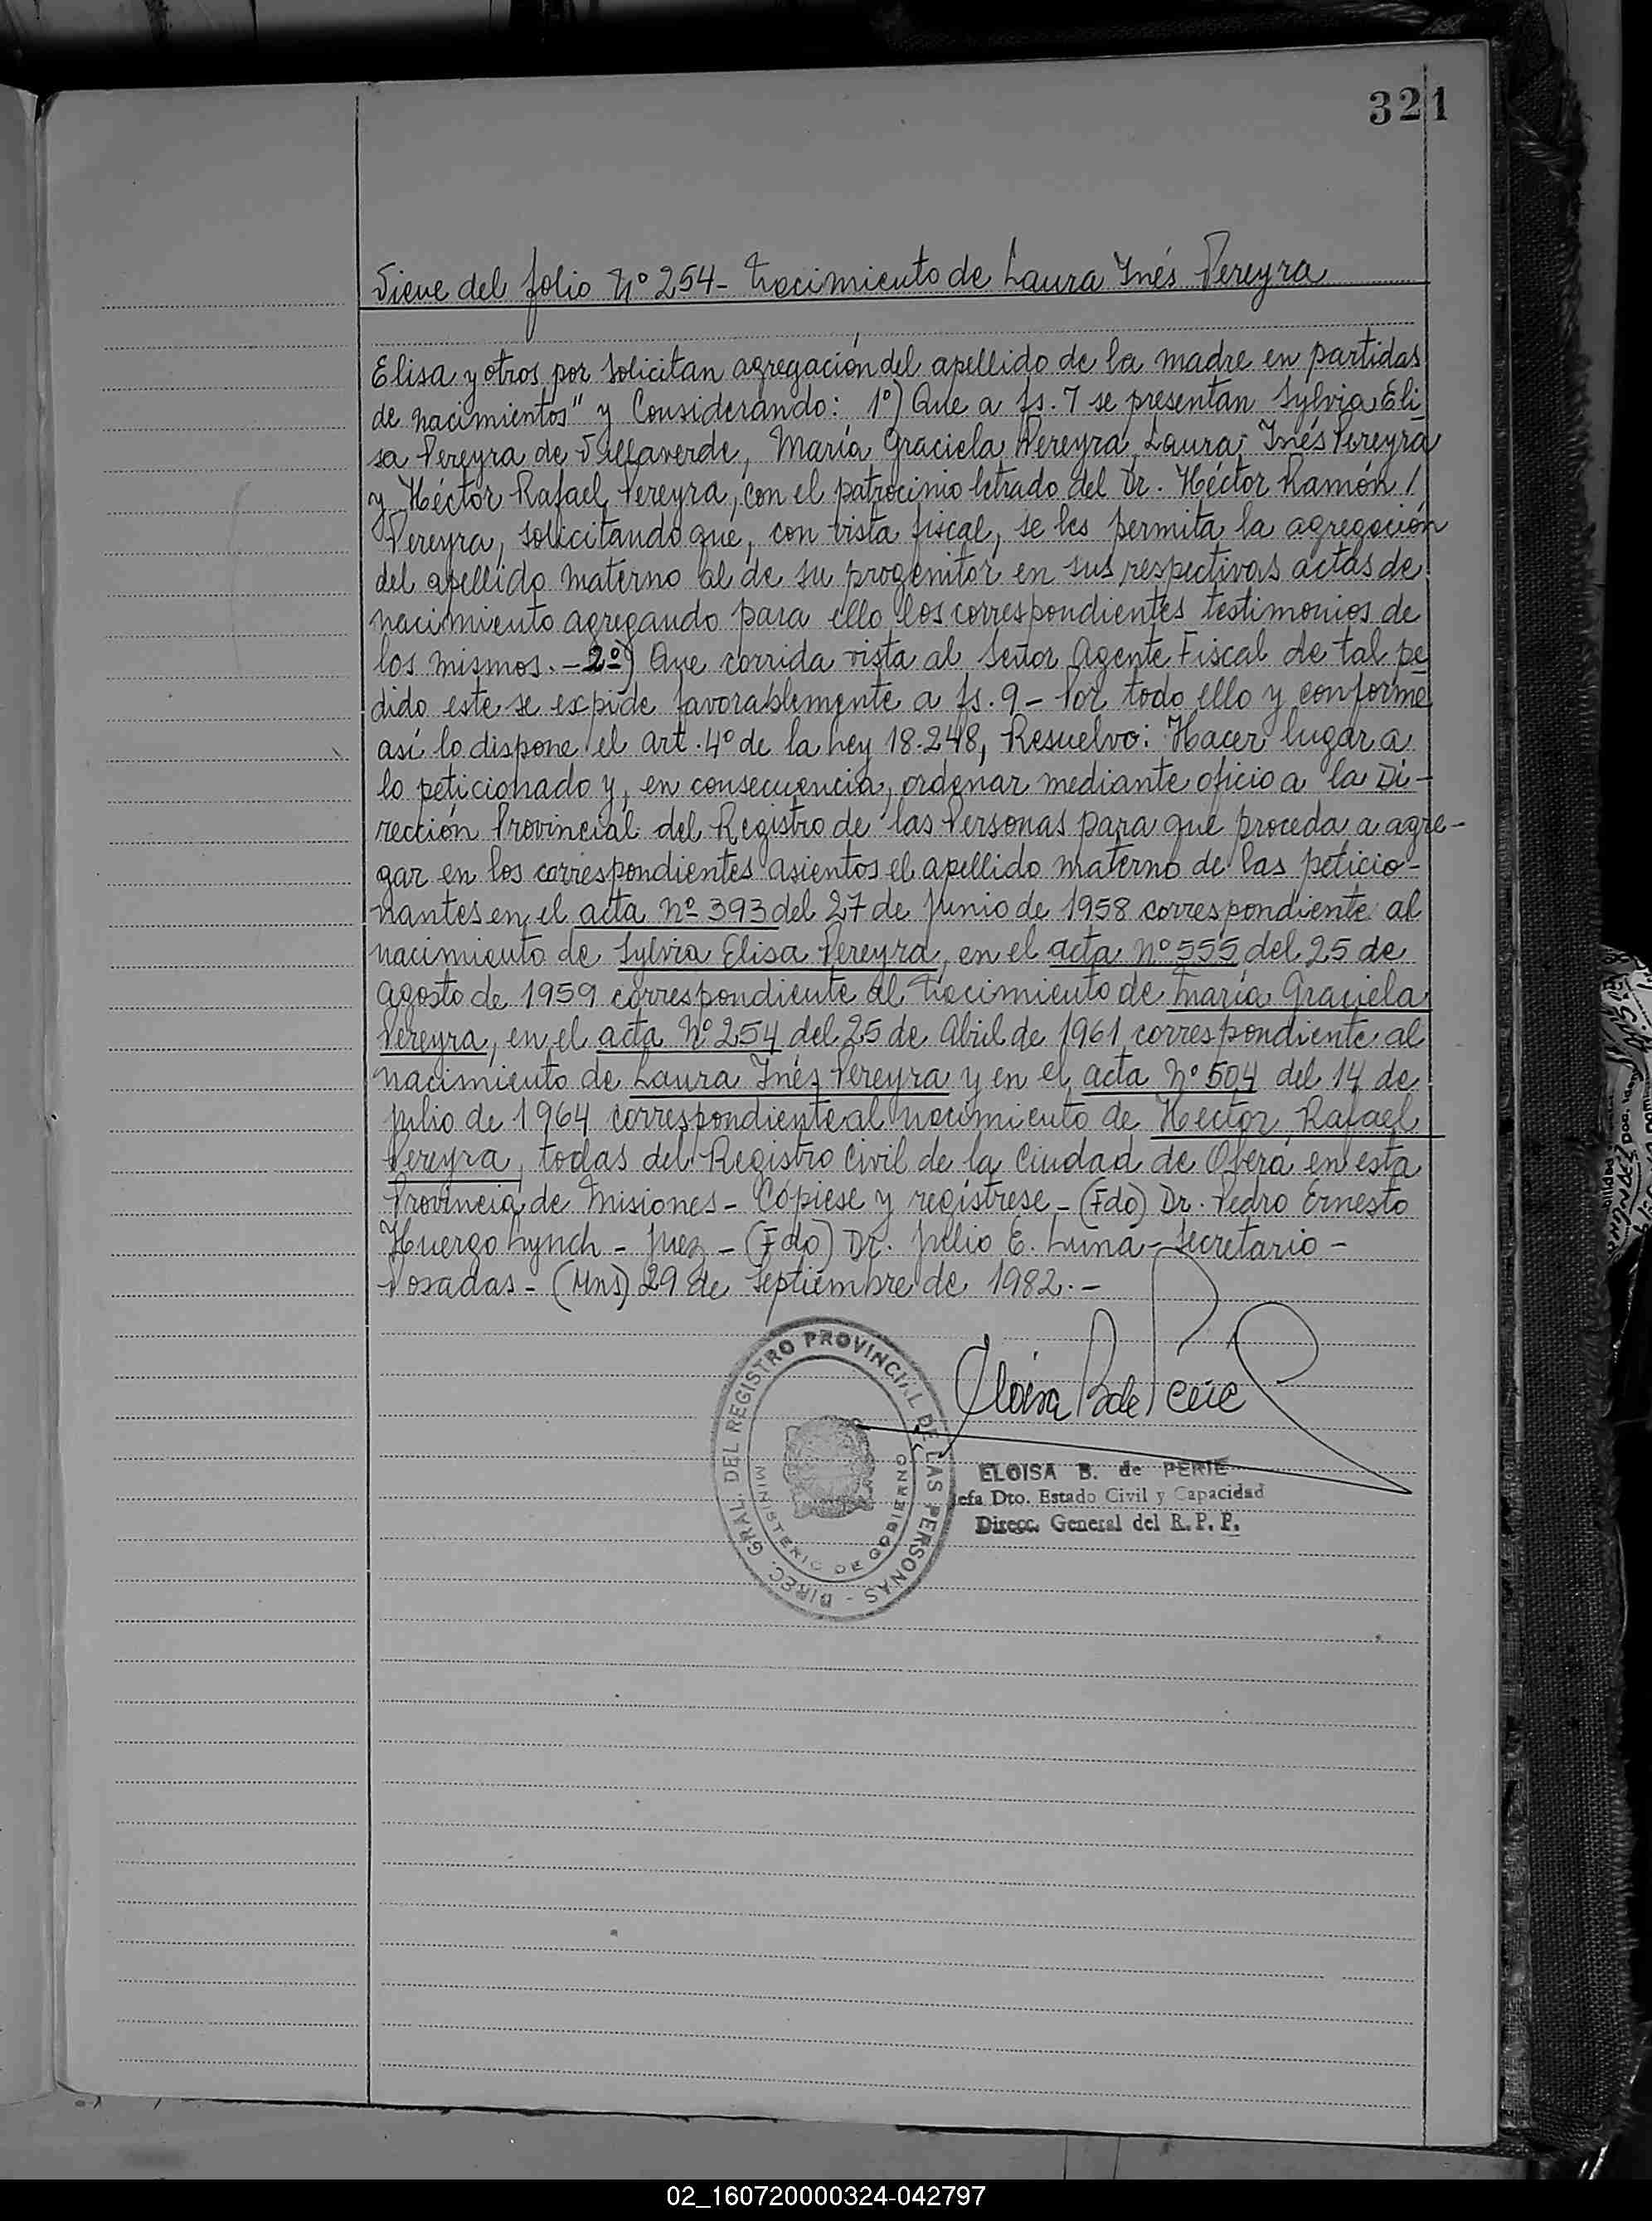 321
Viene del folio Nº 254 - Nacimiento de Laura Inés Pereyra
Elisa y otros por solicitan agregación del apellido de la madre en partidas
de nacimientos" y Considerando: 1º) Que a fs. 7 se presentan Sylvia Eli-
sa Pereyra de Villaverde, María Graciela Pereyra, Laura Inés Pereyra
y Héctor Rafael Pereyra, con el patrocinio letrado del Dr. Héctor Ramón /
Pereyra, solicitando que, con vista fiscal, se les permita la agregación
del apellido materno al de su progenitor en sus respectivas actas de
nacimiento agregando para ello los correspondientes testimonios de
los mismos. - 2º) Que corrida vista al Señor Agente Fiscal de tal pe
dido este se expide favorablemente a fs. 9 - Por todo ello y conforme
así lo dispone el art. 4º de la Ley 18.248, Resuelvo: Hacer lugar a
lo peticionado y, en consecuencia, ordenar mediante oficio a la Di-
rección Provincial del Registro de las Personas para que proceda a agre-
gar en los correspondientes asientos el apellido materno de las peticio-
nantes en el acta nº 393 del 27 de Junio de 1958 correspondiente al
nacimiento de Sylvia Elisa Pereyra, en el acta Nº 555 del 25 de
Agosto de 1959 correspondiente al Nacimiento de María Graciela
Pereyra, en el acta Nº 254 del 25 de Abril de 1961 correspondiente al
nacimiento de Laura Inés Pereyra y en el acta Nº 504 del 14 de
Julio de 1964 correspondiente al nacimiento de Hector Rafael
Pereyra, todas del Registro Civil de la Ciudad de Oberá en esta
Provincia de Misiones - Cópiese y regístrese - (Fdo) Dr. Pedro Ernesto
Huergo Lynch - Juez - (Fdo) Dr. Julio E. Luna - Secretario -
Posadas - (Mns) 29 de Septiembre de 1982. -
Eloisa B de Perié
DIREC. GRAL. DEL REGISTRO PROVINCIAL DE LAS PERSONAS -
MINISTERIO DE GOBIERNO
ELOISA B. de PERIE
Jefa Dto. Estado Civil y Capacidad
Direcc. General del R. P. P.
02_160720000324-042797